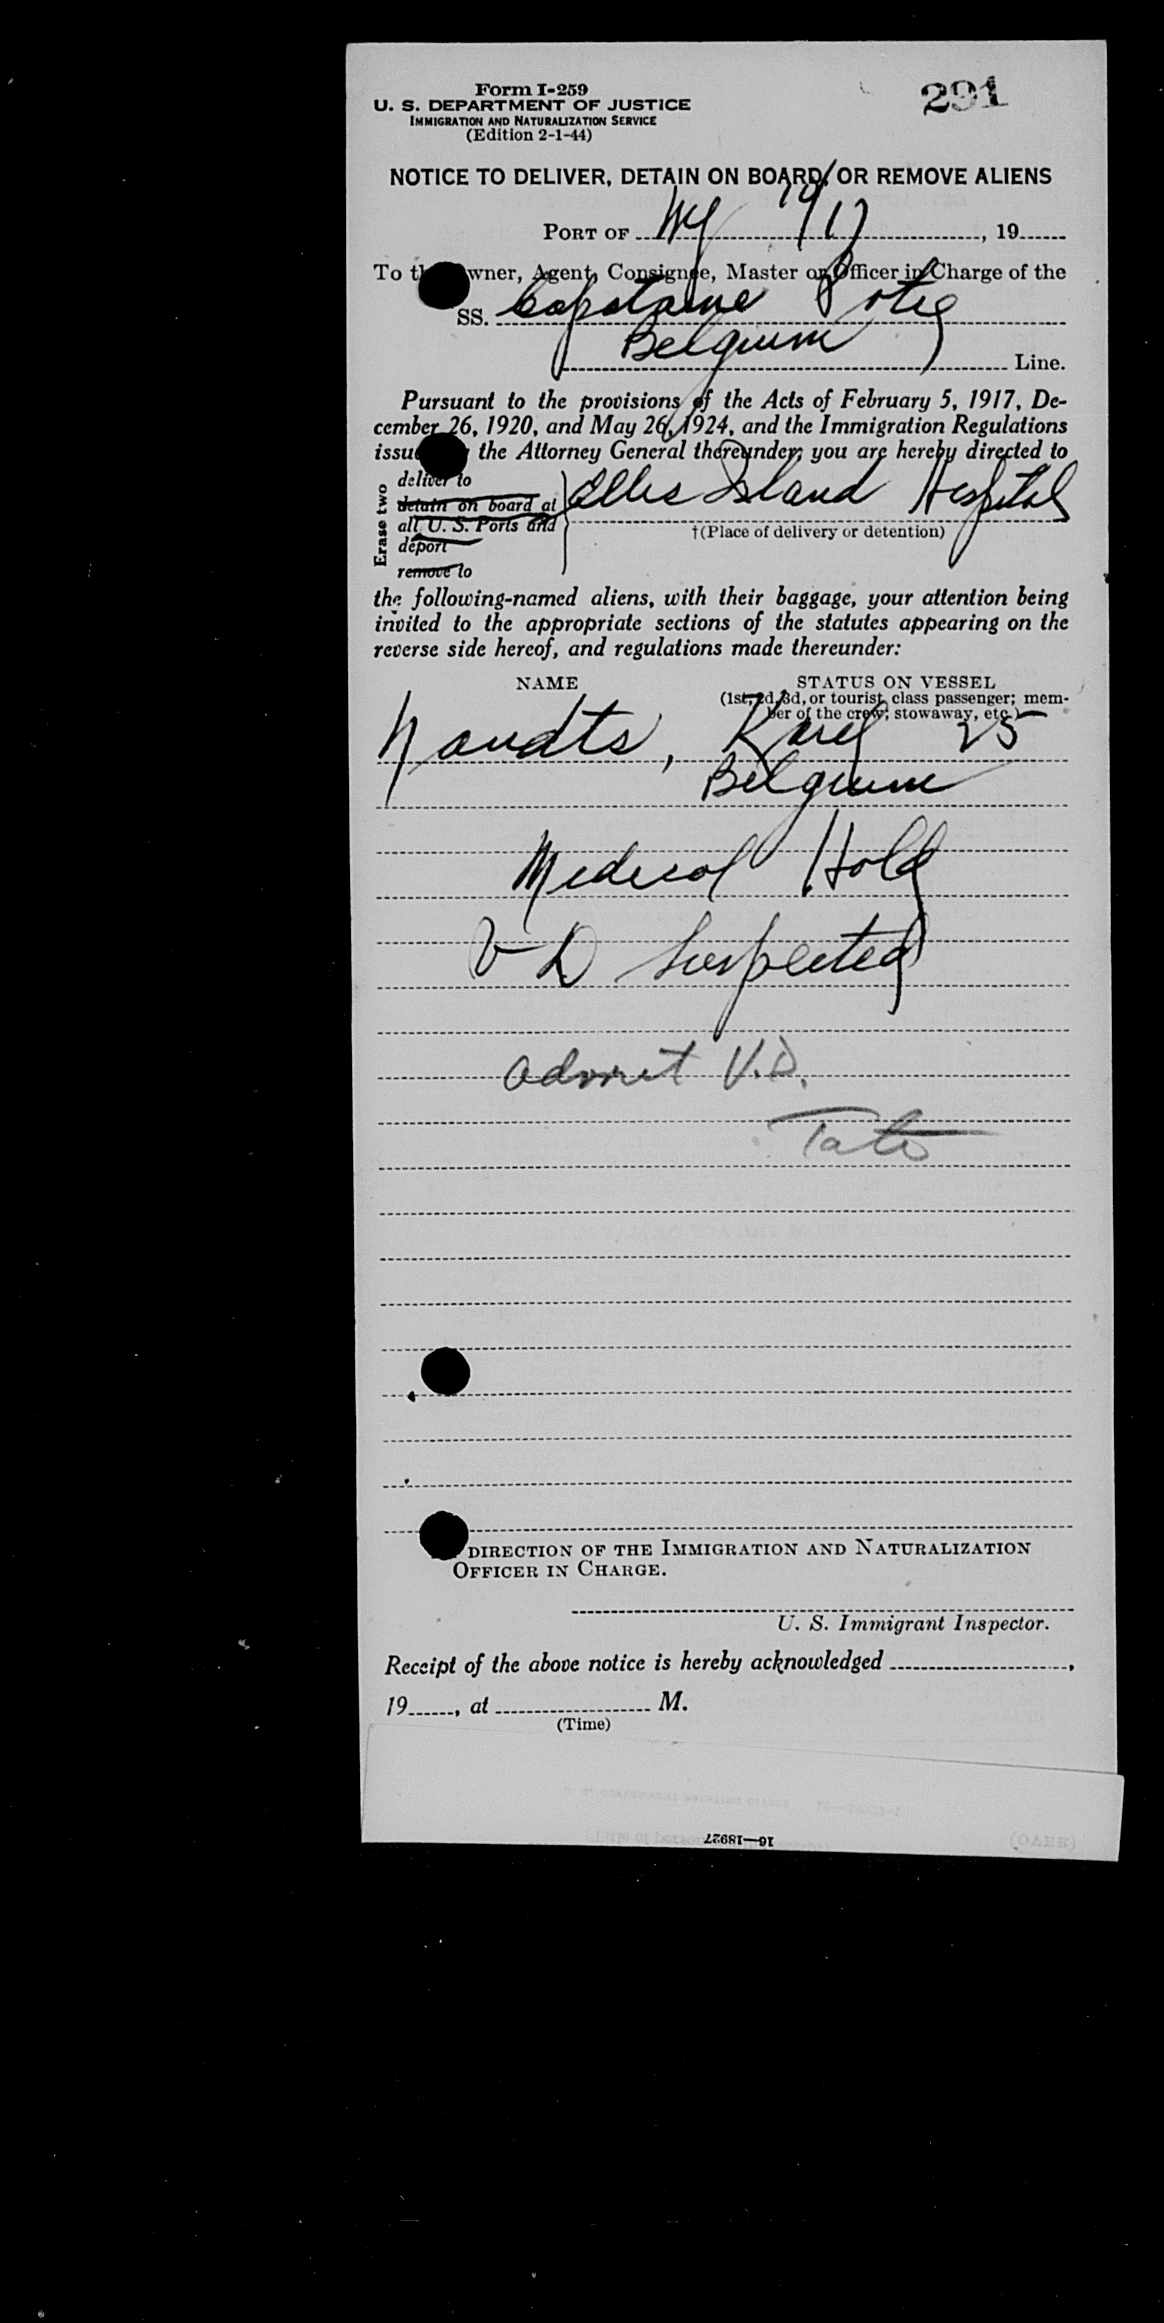 Form I-259
291
U. S. DEPARTMENT OF JUSTICE
IMMIGRATION AND NATURALIZATION SERVICE
(Edition 2-1-44)
NOTICE TO DELIVER, DETAIN ON BOARD, OR REMOVE ALIENS
PORT OF NY , 19
To the Owner, Agent, Consignee, Master or Officer in Charge of the
SS. Capitaine Potie
Belgium Line.
Pursuant to the provisions of the Acts of February 5, 1917, De-
cember 26, 1920, and May 26, 1924, and the Immigration Regulations
issu the Attorney General thereunder, you are hereby directed to
Erase two
deliver to
detain on board at
all U. S. Ports and
deport
remove to
Ellis Island Hospital
†(Place of delivery or detention)
the following-named aliens, with their baggage, your attention being
invited to the appropriate sections of the statutes appearing on the
reverse side hereof, and regulations made thereunder:
NAME STATUS ON VESSEL
(1st, 2d, 3d, or tourist class passenger; mem-
ber of the crew; stowaway, etc.)
Naudts, Karel 25
Belgium
Medical Hold
V D Suspected
admit V.D.
Tate
DIRECTION OF THE IMMIGRATION AND NATURALIZATION
OFFICER IN CHARGE.
U. S. Immigrant Inspector.
Receipt of the above notice is hereby acknowledged ,
19 , at M.
(Time)
16—18927